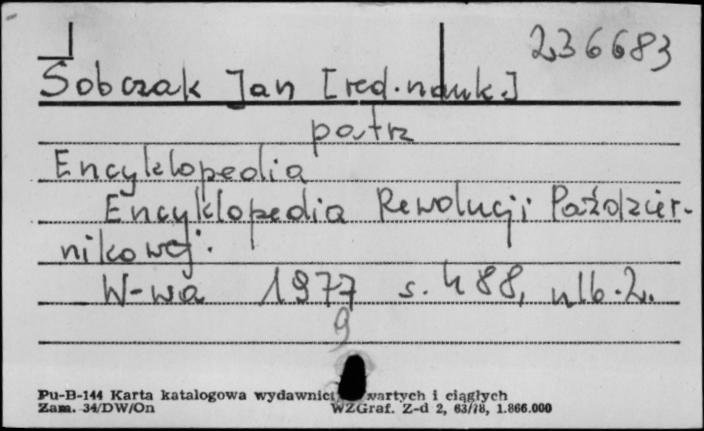 236683
Sobczak Jan [red. nauk.]
patrz
Encyklopedia
Encyklopedia Rewolucji Paździer-
nikowej.
W-wa 1977 s. 488, nlb. 2.
9
Pu-B-144 Karta katalogowa wydawnict zwartych i ciągłych
Zam. 34/DW/On WZGraf. Z-d 2, 63/78, 1.866.000